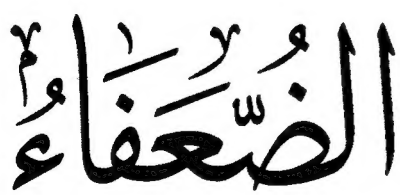 الضُّعَفَاءُ